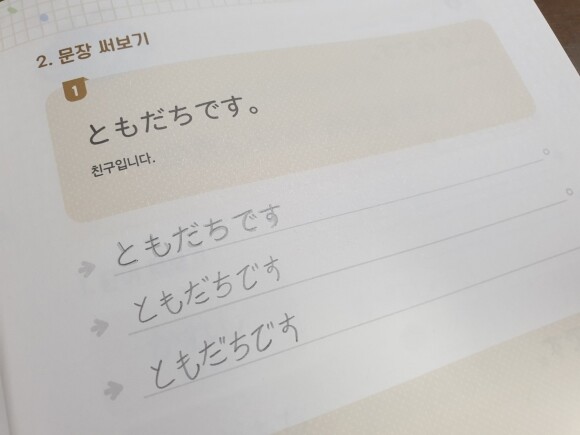 2. 문장 써보기
1
ともだちです。
친구입니다.
ともだちです
ともだちです
ともだちです